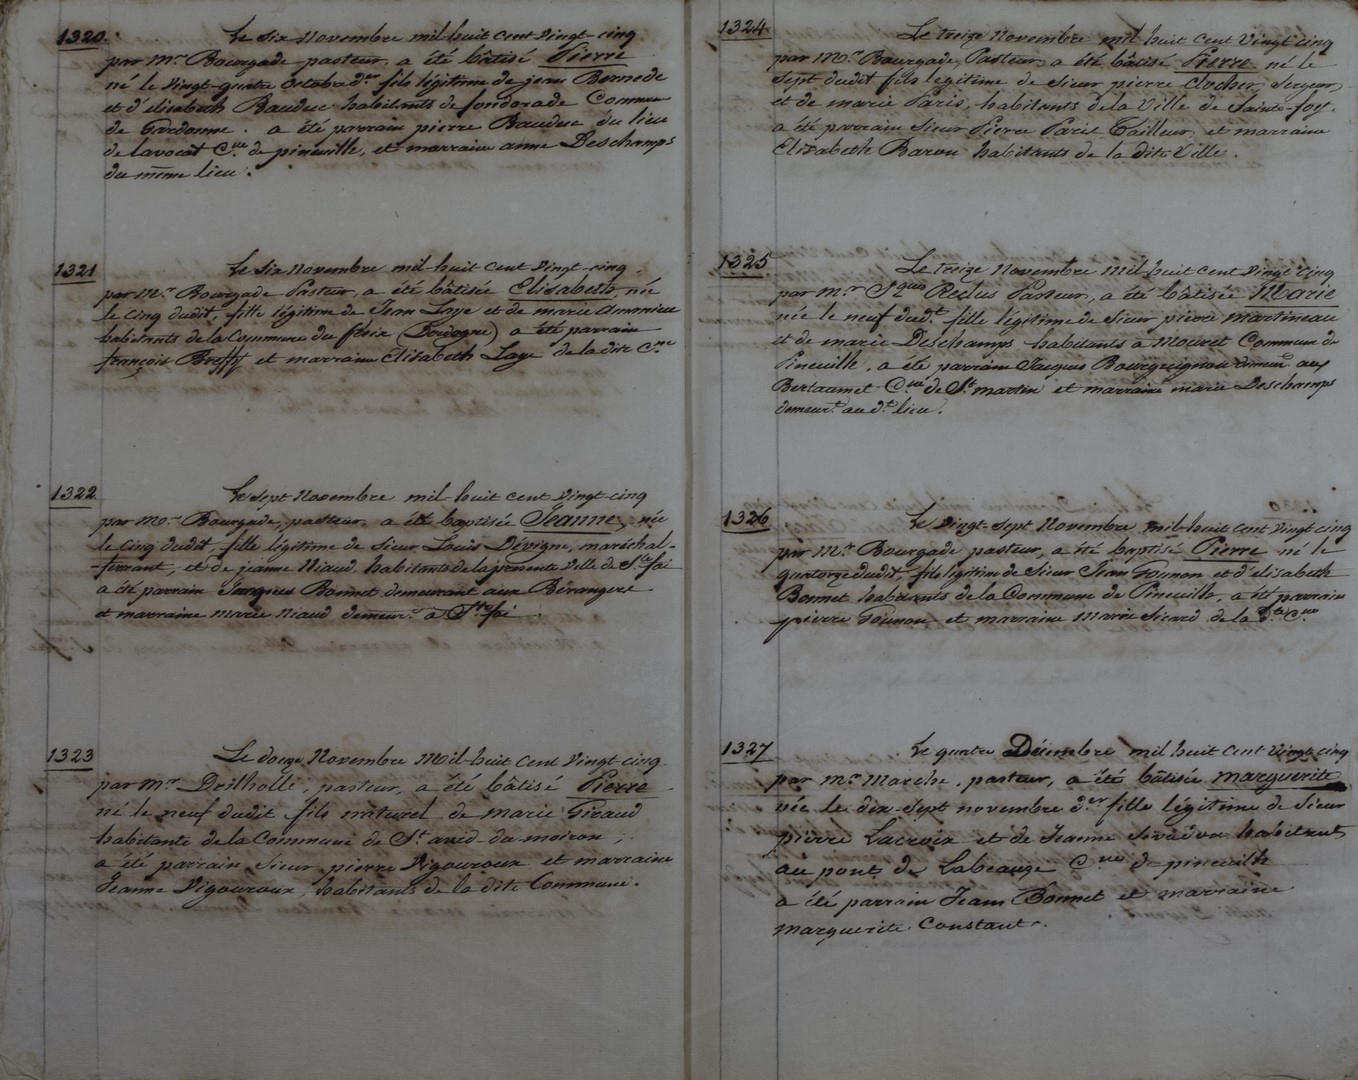 1320. Le Six Novembre mil huit Cent Vingt-cinq
par Mr Bourgade pasteur, a été bâtisé Pierre
né le Vingt-quatre Octobre der fils légitime de jean Bernede
et d'elisabeth Bauduc habitants de fondorade Commune
de Gardonne. a été parrain pierre Bauduc du lieu
de lavocat Cne de pineuille, et marraine anne Deschamps
du même lieu.
1321 Le Six Novembre mil-huit Cent Vingt-cinq
par Mr Bourgade Pasteur, a été bâtisée Elisabeth, née
le Cinq dudit, fille légitime de Jean Laye et de marie
habitants de la Commune du fleix (Dordogne) a été parrain
françois et marraine Elisabeth Laye de la dite Cne
1322 Le Sept Novembre mil-huit Cent Vingt-cinq
par Mr Bourgade, pasteur, a été baptisée Jeanne, née
le Cinq dudit, fille légitime de Sieur Louis Dévigne, maréchal-
ferrant, et de jeanne Niaud habitants de la présente Ville de Ste foi
a été parrain Jacques Bonnet demeurant aux Bérangers
et marraine marie Niaud demeurt a Ste foi
1323 Le douze Novembre Mil-huit Cent Vingt-cinq
par Mr Drilholle, pasteur, a été bâtisé Pierre
né le neuf dudit fils naturel de marie Giraud
habitante de la Commune de St avid-du-moiron;
a été parrain Sieur pierre Vigouroux et marraine
Jeanne Vigouroux, habitants de la dite Commune.
1324 Le treize Novembre mil huit Cent Vingt cinq
par Mr Bourgade, Pasteur, a été bâtisé Pierre né le
Sept dudit fils légitime de Sieur pierre Clocher,
et de marie Paris, habitants de la Ville de Sainte-foy.
a été parrain Sieur Pierre Paris Tailleur, et marraine
Elisabeth Barou habitants de la dite Ville.
1325 Le treize Novembre mil-huit Cent Vingt Cinq
par mr Jques Reclus Pasteur, a été bâtisée Marie
née le neuf dudt fille légitime de Sieur pierre Martineau
et de marie Deschamps habitants a Mouret Commune de
Pineuille, a été parrain Jacques Bourguignon demeurt aux
Bertaumet Cne de St martin et marraine marie Deschamps
demeurt au dt lieu.
1326 Le Vingt-Sept Novembre mil-huit Cent Vingt cinq
par Mr Bourgade pasteur, a été baptisé Pierre né le
quatorze dudit, fils légitime de Sieur Jean Gounon et d'elisabeth
Bonnet habitants de la Commune de Pineuille, a été parrain
pierre Gounon et marraine Marie Sicard de la dte Cne
1327 Le quatre Décembre mil huit Cent Vingt-cinq
par Mr Marche, pasteur, a été bâtisée marguerite
née le dix-Sept novembre der fille légitime de Sieur
pierre Lacroix et de Jeanne habitant
au pont de Labeauze Cne de pineuille
a été parrain Jean Bonnet et marraine
marguerite Constant.